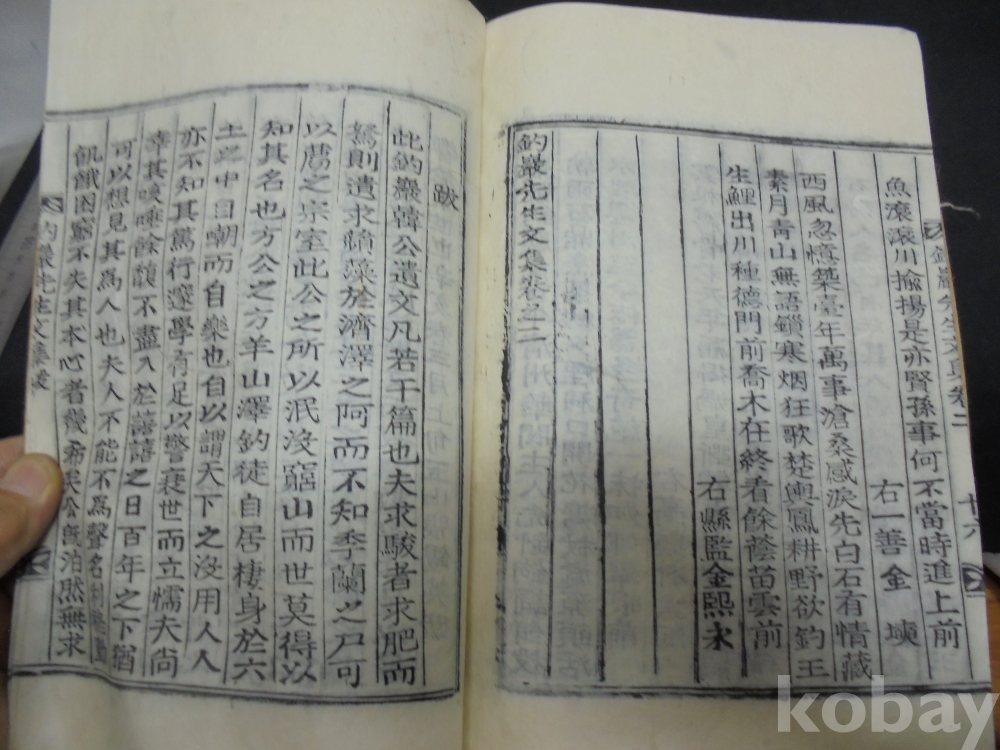 魚滾滾川揄揚是亦賢孫事何不當時進上前
右一善金
西風忽憶築臺年萬事滄桑感淚先白石有情藏
素月青山無語鎖寒烟狂歌楚輿鳳耕野欲釣王
生鯉出川種德門前喬木在終看餘蔭苗雲前
右縣監金熙永
釣巖先生文集卷之二
跋
此釣巖韓公遺文凡若干篇也夫求駿者求肥而
駑則遺求蘋藻於濟澤之阿而不知季蘭之尸可
以薦之宗室此公之所以泯沒窮山而世莫得以
知其名也方公之方羊山澤釣徒自居棲身於六
土之中自嘲而自樂也自以謂天下之沒用人人
亦不知其篤行邃學有足以警衰世而立懦夫尚
幸其咳唾餘馥不盡入於譆譆之日百年之下猶
可以想見其爲人也夫人不能不爲聲名
飢餓困窮不失其本心者幾希矣公旣泊然無求
kobay